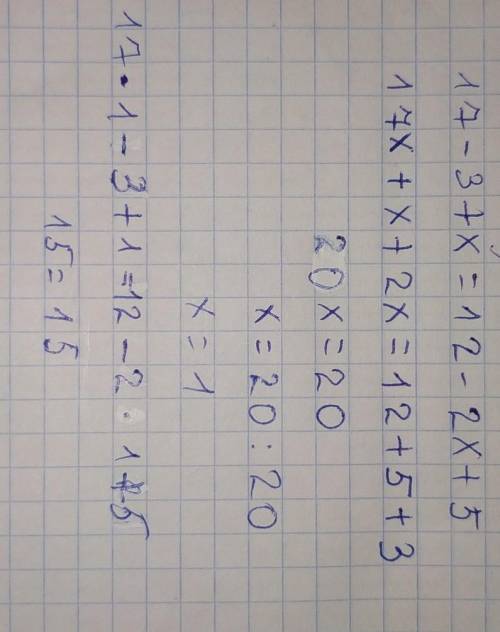 17-3+x=12-2x+5
17x+x+2x=12+5+3
20x=20
x=20:20
x=1
17·1-3+1=12-2·1+5
15=15